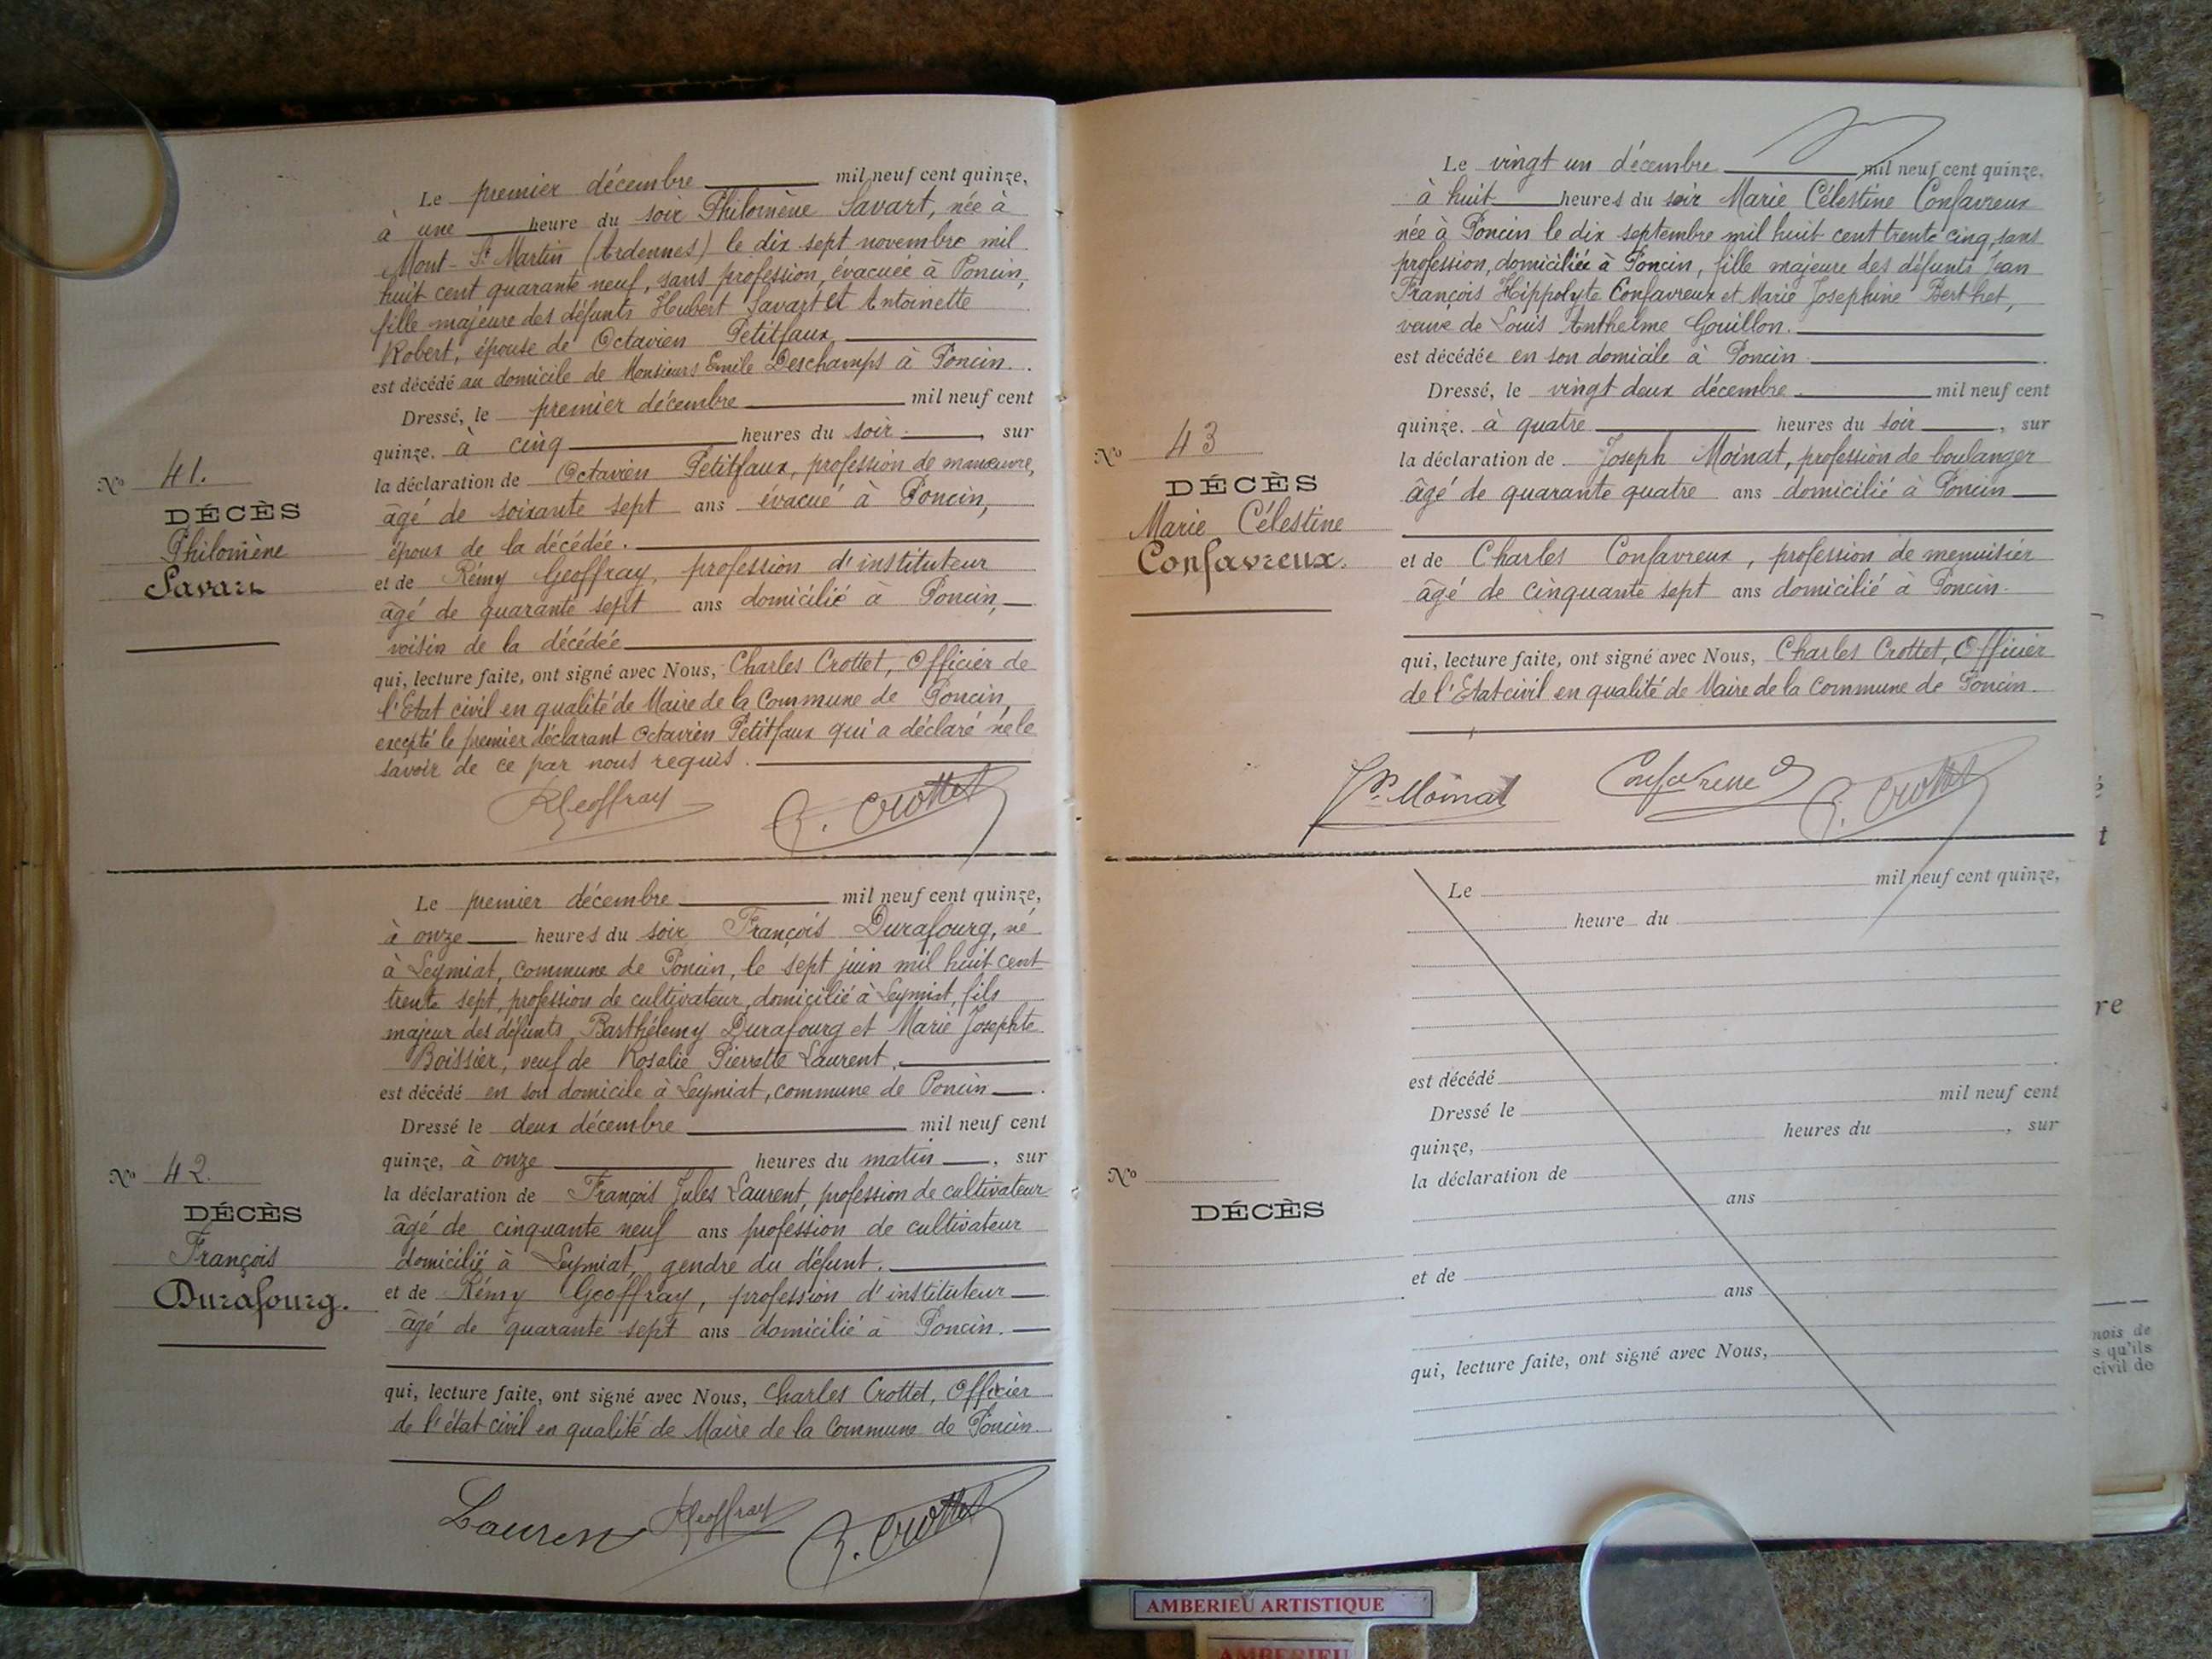 Le premier décembre mil neuf cent quinze,
à une heure du soir Philomène Savart, née à
Mont-St Martin (Ardennes) le dix sept novembre mil
huit cent quarante neuf, sans profession, évacuée à Poncin,
fille majeure des défunts Hubert Savart et Antoinette
Robert, épouse de Octavien Petitfaux
est décédé au domicile de Monsieurs Emile Deschamps à Poncin.
Dressé, le premier décembre mil neuf cent
quinze. à cinq heures du soir, sur
la déclaration de Octavien Petitfaux, profession de manœuvre,
âgé de soixante sept ans évacué à Poncin,
époux de la décédée.
et de Rémy Geoffray, profession d'instituteur
âgé de quarante sept ans domicilié à Poncin,
voisin de la décédée
qui, lecture faite, ont signé avec Nous, Charles Crottet, Officier de
l'Etat civil en qualité de Maire de la Commune de Poncin,
excepté le premier déclarant Octavien Petitfaux qui a déclaré ne le
savoir de ce par nous requis.
RGeoffray C. Crottet
No 41.
DÉCÈS
Philomène
Savart
Le premier décembre mil neuf cent quinze,
à onze heures du soir François Durafourg, né
à Leymiat, commune de Poncin, le sept juin mil huit cent
trente sept, profession de cultivateur, domicilié à Leymiat, fils
majeur des défunts Barthélemy Durafourg et Marie Josephte
Boissier, veuf de Rosalie Pierrette Laurent.
est décédé en son domicile à Leymiat, commune de Poncin.
Dressé le deux décembre mil neuf cent
quinze, à onze heures du matin, sur
la déclaration de François Jules Laurent, profession de cultivateur
âgé de cinquante neuf ans profession de cultivateur
domicilié à Leymiat, gendre du défunt.
et de Rémy Geoffray, profession d'instituteur
âgé de quarante sept ans domicilié à Poncin.
qui, lecture faite, ont signé avec Nous, Charles Crottet, Officier
de l'état civil en qualité de Maire de la Commune de Poncin.
Laurent RGeoffray C. Crottet
No 42.
DÉCÈS
François
Durafourg.
Le vingt un décembre mil neuf cent quinze.
à huit heures du soir Marie Célestine Confavreux
née à Poncin le dix septembre mil huit cent trente cinq, sans
profession, domiciliée à Poncin, fille majeure des défunts Jean
François Hippolyte Confavreux et Marie Josephine Berthet,
veuve de Louis Anthelme Gouillon.
est décédée en son domicile à Poncin.
Dressé, le vingt deux décembre mil neuf cent
quinze. à quatre heures du soir, sur
la déclaration de Joseph Moinat, profession de boulanger
âgé de quarante quatre ans domicilié à Poncin
et de Charles Confavreux, profession de menuisier
âgé de cinquante sept ans domicilié à Poncin.
qui, lecture faite, ont signé avec Nous, Charles Crottet, Officier
de l'Etat civil en qualité de Maire de la Commune de Poncin.
Jh Moinat Confavreux C. Crottet
No 43
DÉCÈS
Marie Célestine
Confavreux.
Le mil neuf cent quinze,
heure du
est décédé
Dressé le mil neuf cent
quinze, heures du , sur
la déclaration de
ans
et de
ans
qui, lecture faite, ont signé avec Nous,
No
DÉCÈS
t
re
nois de
s qu'ils
civil de
AMBERIEU ARTISTIQUE
AMBERIEU